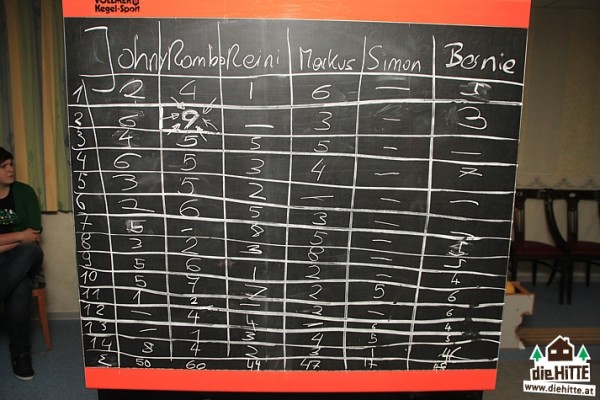 VOLLMER
Kegel-Sport
Johny Rombo Reini Markus Simon Bernie
1 2 4 1 6 — 1
2 5 9 — 3 — 3
3 4 5 5 5 — —
4 6 5 3 4 — 7
5 3 5 2 — — —
6 2 6 5 3 — —
7 5 —
8 3 2 3 8 —
9 5 6 — 5
10 5 7 1 2 — 4
11 1 2 2 5 6
12 — 4 — — — 6
13 — 1 4 — 6 4
14 8 4 2 3 1 4
Σ 50 60 44 47 17
die HiTTE
www.diehitte.at